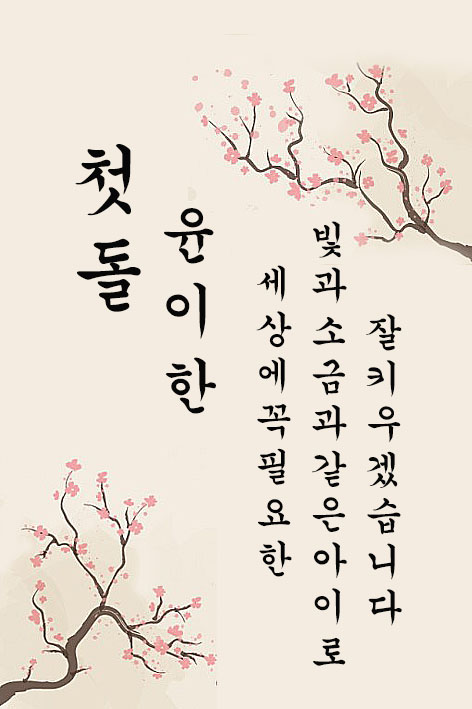 첫돌
윤이한
세상에꼭필요한
빛과소금과같은아이로
잘키우겠습니다